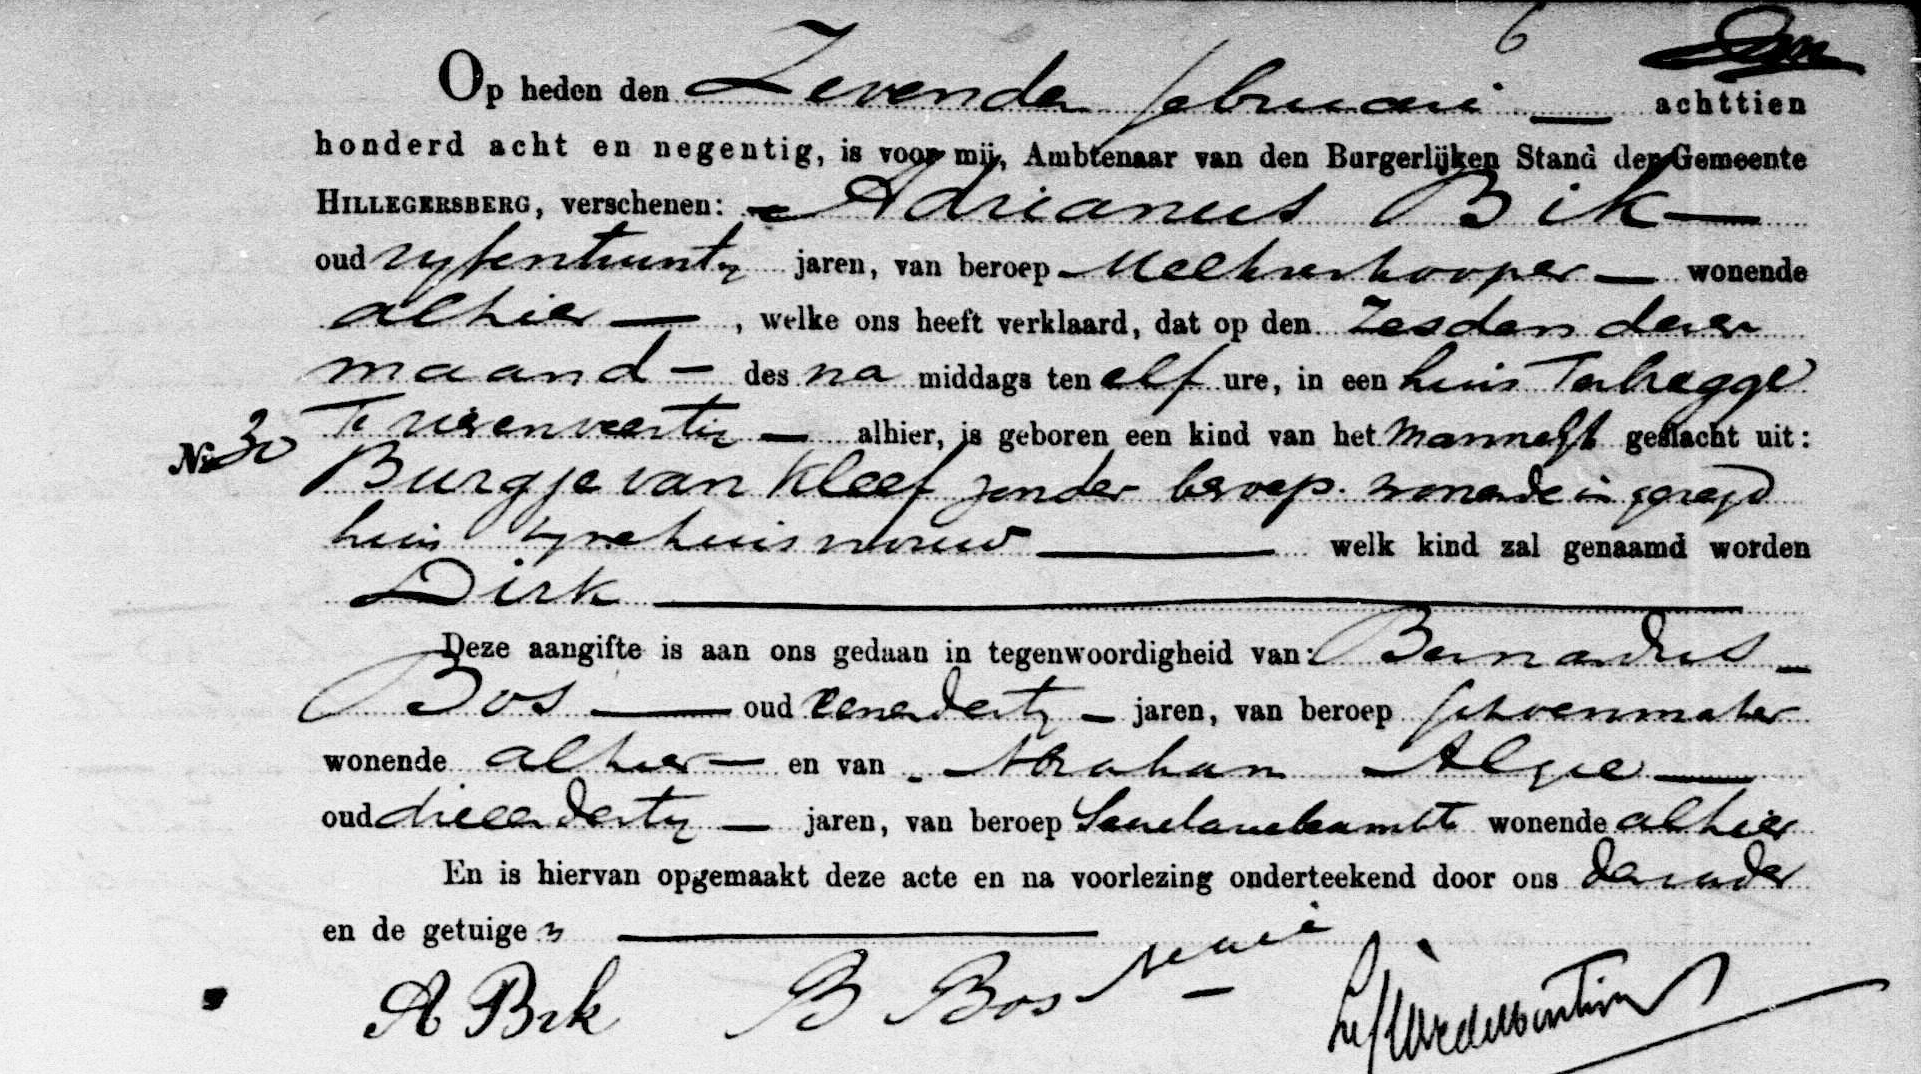 6
Op heden den Zevenden februari achttien
honderd acht en negentig, is voor mij, Ambtenaar van den Burgerlijken Stand der Gemeente
HILLEGERSBERG, verschenen: Adrianus Bik
oud vyfentwintig jaren, van beroep Melkverkooper wonende
alhier, welke ons heeft verklaard, dat op den Zesden dezer
maand des na middags ten elf ure, in een huis Terbregge
vierenveertig alhier, is geboren een kind van het mannelyk geslacht uit:
No 30
Burgje van Kleef zonder beroep wonende in gezegd
huis zyne huisvrouw welk kind zal genaamd worden
Dirk
Deze aangifte is aan ons gedaan in tegenwoordigheid van: Bernardus
Bos oud eenendertig jaren, van beroep schoenmaker
wonende alhier en van Abraham
oud drieendertig jaren, van beroep wonende alhier
En is hiervan opgemaakt deze acte en na voorlezing onderteekend door ons den vader
en de getuigen
A Bik B Bos